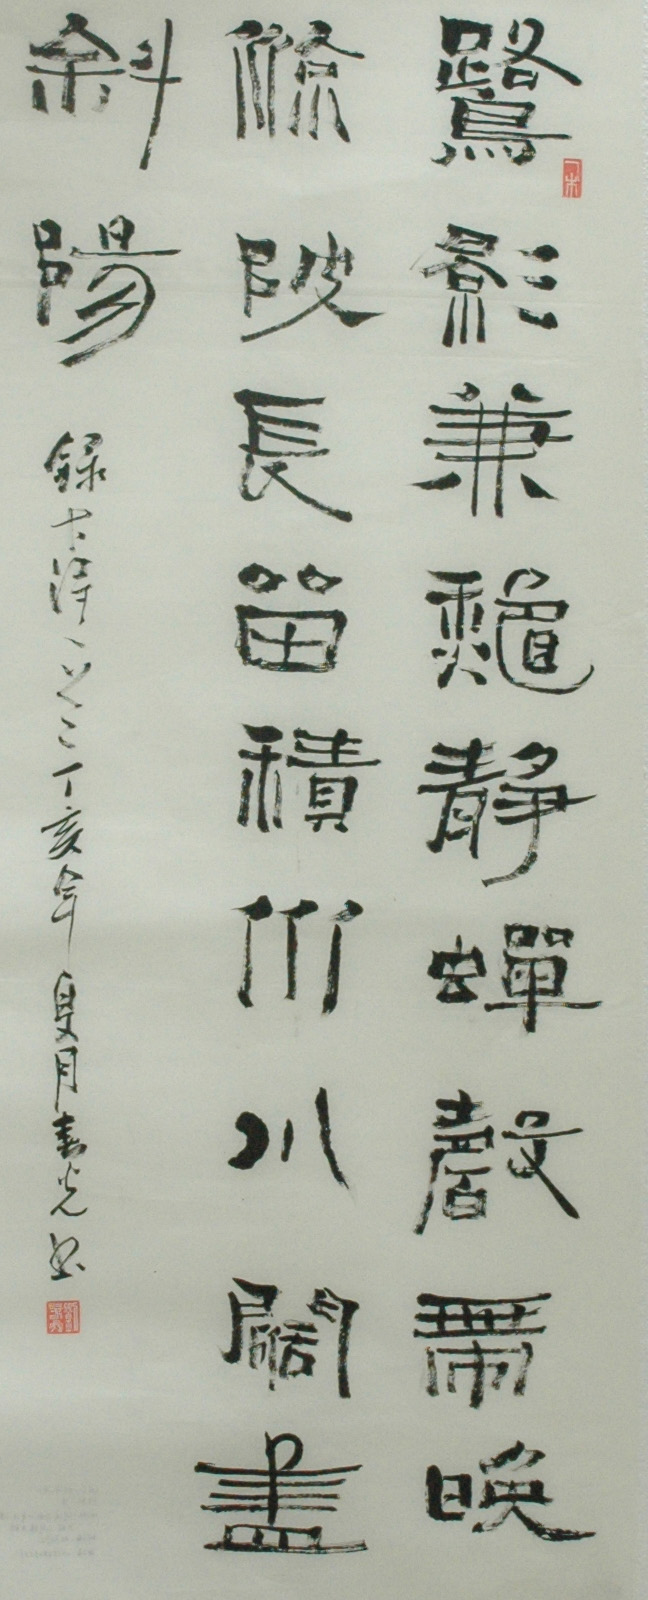 鷺影兼龝靜蟬聲帶晚
涼陂長留積水川闊盡
斜陽
錄古詩一首丁亥年夏月春光書